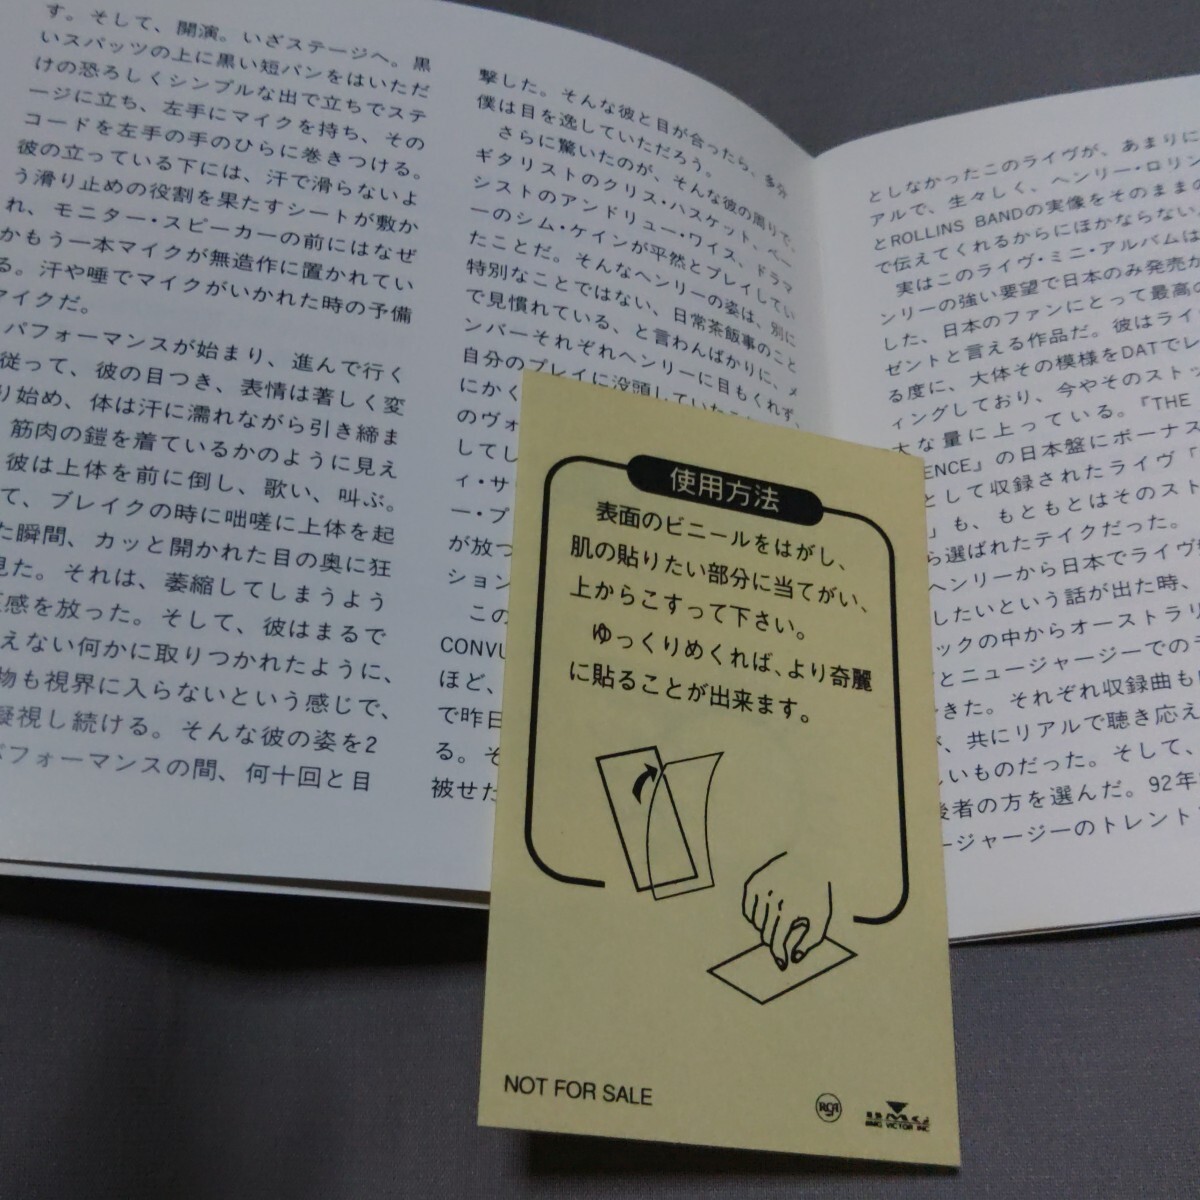 す。そして、開演。いざステージへ。黒
いスパッツの上に黒い短パンをはいただ
けの恐ろしくシンプルな出で立ちでステ
ージに立ち、左手にマイクを持ち、その
コードを左手の手のひらに巻きつける。
彼の立っている下には、汗で滑らないよ
う滑り止めの役割を果たすシートが敷か
れ、モニター・スピーカーの前にはなぜ
かもう一本マイクが無造作に置かれてい
る。汗や唾でマイクがいかれた時の予備
マイクだ。
パフォーマンスが始まり、進んで行く
従って、彼の目つき、表情は著しく変
り始め、体は汗に濡れながら引き締ま
筋肉の鎧を着ているかのように見え
彼は上体を前に倒し、歌い、叫ぶ。
て、ブレイクの時に咄嗟に上体を起
た瞬間、カッと開かれた目の奥に狂
見た。それは、萎縮してしまうよう
感を放った。そして、彼はまるで
えない何かに取りつかれたように、
物も視界に入らないという感じで、
凝視し続ける。そんな彼の姿を2
パフォーマンスの間、何十回と目
撃した。そんな彼と目が合ったら、多分
僕は目を逸していただろう。
さらに驚いたのが、そんな彼の周りで、
ギタリストのクリス・ハスケット、ベー
シストのアンドリュー・ワイス、ドラマ
ーのシム・ケインが平然とプレイしてい
たことだ。そんなヘンリーの姿は、別に
特別なことではない、日常茶飯事のこと
で見慣れている、と言わんばかりに、メ
ンバーそれぞれヘンリーに目もくれず、
自分のプレイに没頭していた
にかく
のヴォ
してし
ィ・サ
ー・ブ
が放つ
ション
この
CONVU
ほど、
で昨日
る。そ
被せた
としなかったこのライヴが、あまりに
アルで、生々しく、ヘンリー・ロリン
とROLLINS BANDの実像をそのままの
で伝えてくれるからにほかならない
実はこのライヴ・ミニ・アルバムは
ンリーの強い要望で日本のみ発売が
した、日本のファンにとって最高の
ゼントと言える作品だ。彼はライ
る度に、大体その模様をDATでレ
ィングしており、今やそのストッ
大な量に上っている。『THE
ENCE』の日本盤にボーナス
として収録されたライヴ『
』も、もともとはそのスト
ら選ばれたテイクだった。
ヘンリーから日本でライヴ
したいという話が出た時、
ックの中からオーストラリ
とニュージャージーでの
きた。それぞれ収録曲も
、共にリアルで聴き応え
しいものだった。そして、
後者の方を選んだ。92年
ージャージーのトレント
使用方法
表面のビニールをはがし、
肌の貼りたい部分に当てがい、
上からこすって下さい。
ゆっくりめくれば、より奇麗
に貼ることが出来ます。
NOT FOR SALE
RCA
BMG
BMG VICTOR INC